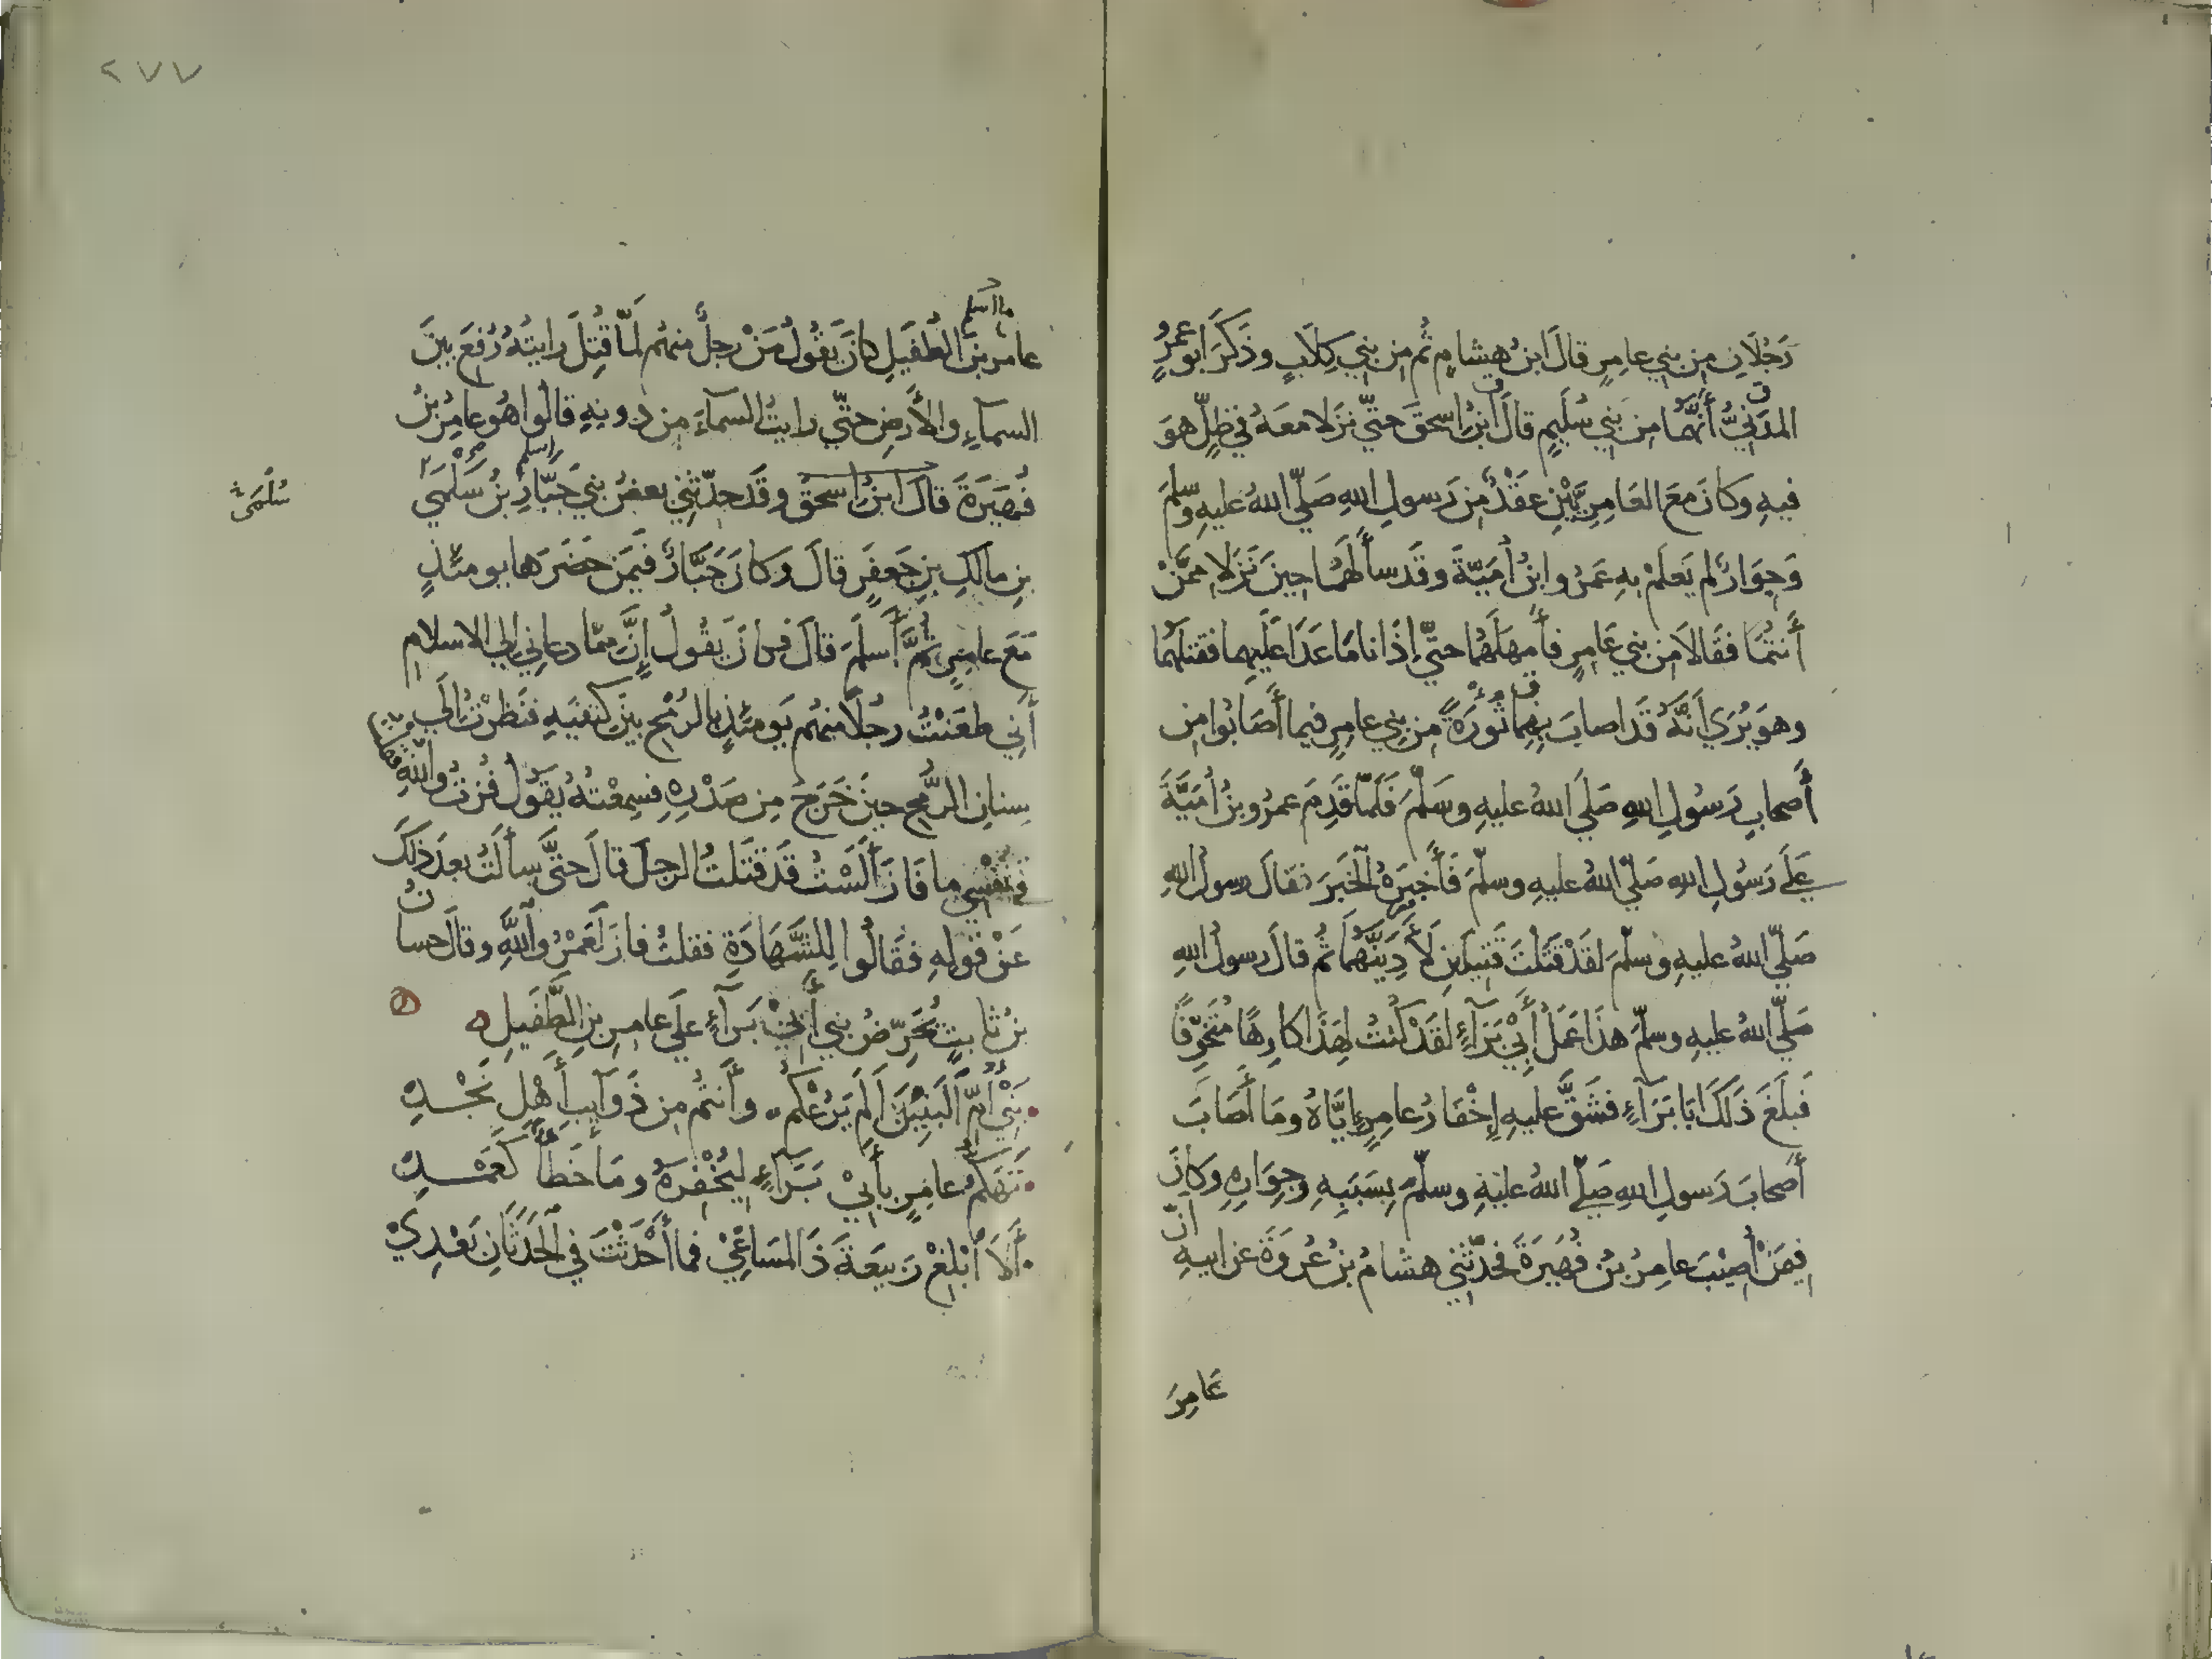 رَجُلَانِ مِن بَنِي عامِرٍ قالَ ابنُ هِشامٍ ثُمَّ مِن بَنِي كِلَابٍ وذَكَرَ أبو عَمرٍو
المدَنِيُّ أَنَّهُما مِن بَنِي سُلَيمٍ قالَ ابنُ اسحقَ حتّى نَزَلا معَهُ في ظِلٍّ هوَ
فيهِ وكانَ معَ العَامِرِيَّيْنِ عَقْدٌ مِن رَسولِ اللهِ صَلّى اللهُ عليهِ وسلمَ
وَجِوَارٌ لم يَعلَمْ بهِ عَمرُو ابنُ أُمَيّةَ وقَد سأَلَهُما حِينَ نَزَلا مِمَّنْ
أَنتُمَا فقَالا مِن بني عَامِرٍ فأَمهَلَهُما حتّى إذَا نامَا عَدَا عَلَيهِما فقتلَهُما
وهوَ يُرَى أنَّهُ قَد اصابَ بِهِمَا ثُورَةً مِن بني عامِرٍ فيما أَصَابُوا مِن
أَصحابِ رَسُولِ اللهِ صَلَى اللهُ عليهِ وسَلمَ فَلَمّا قَدِمَ عمرُو بنُ أُمَيَّةَ
عَلَى رَسُولِ اللهِ صَلّى اللهُ عليهِ وسلّمَ فَأَخبَرَهُ الخَبَرَ فقالَ رسولُ اللهِ
صَلّى اللهُ عليهِ وسلّمَ لقَدْ قَتَلْتَ قَتِيلَينِ لَأَدِيَنَّهُمَا ثُم قالَ رسولُ اللهِ
صَلّى اللهُ عليهِ وسلّمَ هذَا عَمَلُ أَبِي بَرَآءٍ لقَدْ كُنتُ لِهَذَا كارِهًا مُتَخَوِّفًا
فَبلَغَ ذَلكَ ابَا بَرَآءٍ فشَقَّ عليهِ إِخْفَارُ عامِرٍ إِيَّاهُ ومَا أَصَابَ
أَصحَابَ رَسولِ اللهِ صَلّى اللهُ عليهِ وسلّمَ بِسَبَبِهِ وجِوَارِهِ وكَانَ
فِيمَنْ أُصِيبَ عامِرُ بنُ فُهَيرَةَ فحَدّثَنِي هشامُ بنُ عُروَةَ عن ابيهِ انّ
عَامِرَ
٢٧٧
عامرَ بنَ الطُفَيلِ كانَ يقُولُ مَنْ رجلٌ منهُم لَمّا قُتِلَ رايتُهُ رُفِعَ بينَ
السمآءِ والأرضِ حتّى رايتُ السمآءَ مِن دونِهِ قالُوا هُو عامِرُ بنُ
فُهَيرَةَ قالَ ابنُ اسحقَ وقَد حدّثنِي بعضُ بني جَبَّارِ بنِ سَلْمَى
سُلْمَى
بنِ مالكِ بنِ جَعفَرٍ قالَ وكانَ جَبَّارٌ فيمَن حَضَرَها يومئذٍ
مَعَ عامِرٍ ثُمَّ أَسلَمَ قالَ فكانَ يقُولُ إنَّ ممّا دعانِي إلى الاسلامِ
أَنِي طعَنْتُ رجُلًا منهُم يَومَئذٍ بالرُمْحِ بينَ كَتفَيهِ فنَظرْتُ إلَى
سِنانِ الرُّمحِ حينَ خَرَجَ مِن صَدْرِهِ فسمِعْتُهُ يقُولُ فُزتُ واللهِ فقلتُ
في نَفْسِي ما فَازَ أَلَسْتُ قَد قتَلتُ الرجلَ قالَ حتَّى سألتُ بعدَ ذلكَ
عَنْ قَولِهِ فقَالُوا لِلشَّهَادَةِ فقلتُ فازَ لَعَمْرُ واللهِ وقالَ حسانُ
بنُ ثابتٍ يُحَرِّضُ بني أَبِي بَرآءٍ عَلَى عامِرِ بنِ الطُّفَيلِ
بَنِي أُمِّ الْبَنِينَ أَلَم يَرُعْكُم وأَنتُم مِن ذَوَآيبِ أَهْلِ نَجْدِ
تَهَكُّمُ عامِرٍ بأَبِي بَرَآءٍ لِيُخْفِرَهُ ومَا خَطَأٌ كَعَمْدِ
أَلَا أَبْلِغْ رَبِيعَةَ ذَا المَسَاعِي فما أَحْدَثْتَ في الحَدَثَانِ بَعْدِي